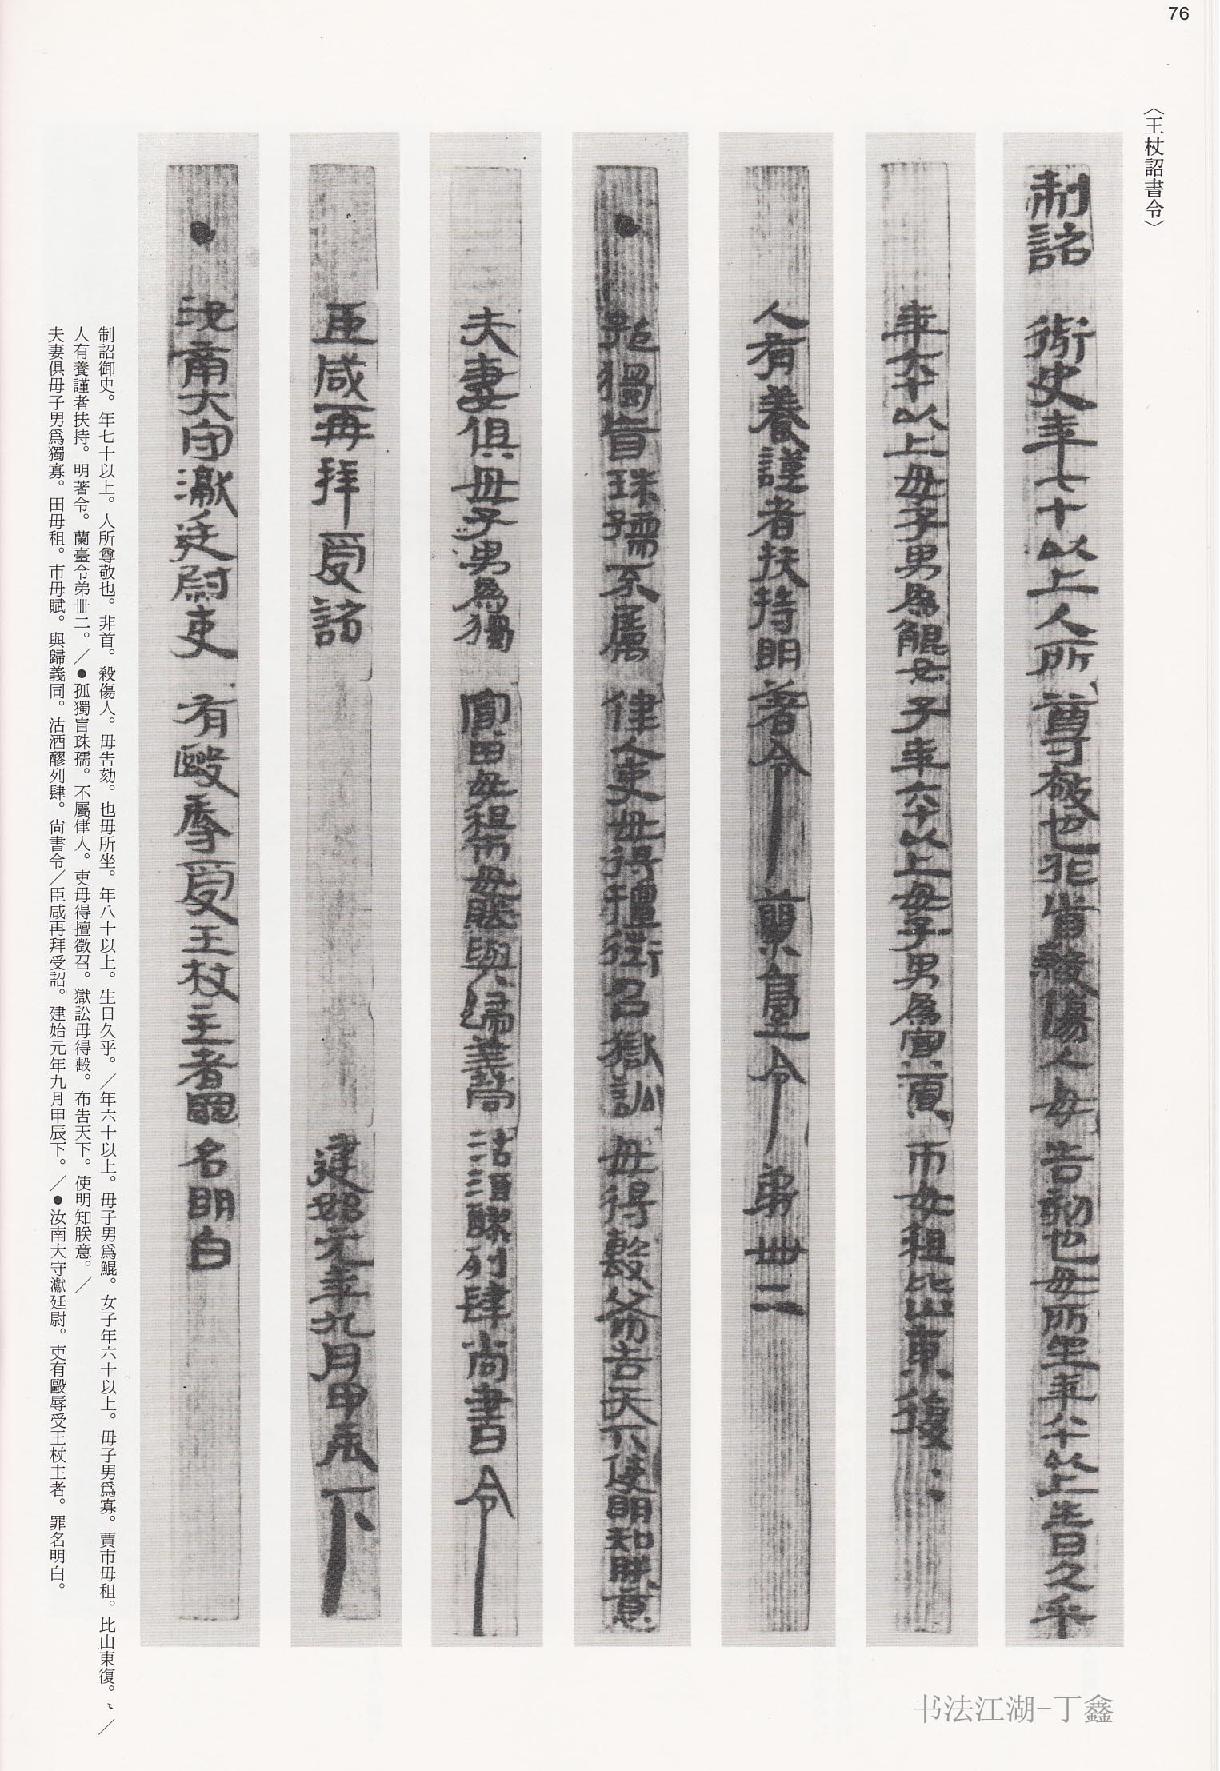 76
〈王杖詔書令〉
制詔 御史年七十以上人所 尊敬也非首殺傷人毋 告劾也毋所坐年八十以上生日久乎
年六十以上毋子男為鯤女子年六十以上毋子男為寡賈市毋租比山東復
人有養謹者扶持明著令 蘭臺令 弟卌二
● 孤獨盲珠孺不屬 律人吏毋得擅徵召獄訟毋得毄布告天下使明知朕意
夫妻俱毋子男為獨 寡田毋租市毋賦與歸義同 沽酒醪列肆尚書令
臣咸再拜受詔 建始元年九月甲辰下
● 汝南大守讞廷尉吏 有毆辱受王杖主者罪名明白
制詔御史。年七十以上。人所尊敬也。非首。殺傷人。毋告劾。也毋所坐。年八十以上。生日久乎。／年六十以上。毋子男爲鯤。女子年六十以上。毋子男爲寡。賈市毋租。比山東復。〻／
人有養謹者扶持。明著令。蘭臺令弟卌二。／●孤獨盲珠孺。不屬律人。吏毋得擅徵召。獄訟毋得毄。布告天下。使明知朕意。／
夫妻俱毋子男爲獨寡。田毋租。市毋賦。與歸義同。沽酒醪列肆。尚書令／臣咸再拜受詔。建始元年九月甲辰下。／●汝南大守讞廷尉。吏有毆辱受王杖主者。罪名明白。
书法江湖-丁鑫